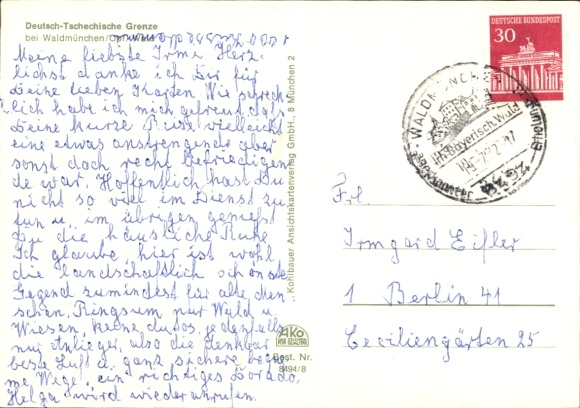 Deutsch-Tschechische Grenze
bei Waldmünchen/Opf. Wald
Meine liebste Irme Herz-
lichst danke ich Dir für
Deine lieben Karten Wie schreck
lich habe ich mich gefreut daß
Deine kurze Kur vielleicht
eine etwas anstrengende aber
sonst doch recht befriedigen
de war. Hoffentlich hast Du
nicht so viel im Dienst zu
tun u. im übrigen genieße
Du die häusliche Ruhe
Ich glaube, hier ist wohl
die landschaftlich schönste
Gegend zumindest für alte Men
schen. Ringsum nur Wald u.
Wiesen, keine Autos, jedenfalls
nur Anlieger, also die denkbar
beste Luft u. ganz sichere beque
me Wege, ein richtiges Dorado,
Helga wird wieder anrufen.
Kohlbauer Ansichtskartenverlag GmbH., 8 München 2
AKO
Best. Nr.
8494/8
DEUTSCHE BUNDESPOST
30
WALDMÜNCHEN
im Bayerisch. Wald
Frl.
Irmgard Eifler
1 Berlin 41
Ceciliengärten 25